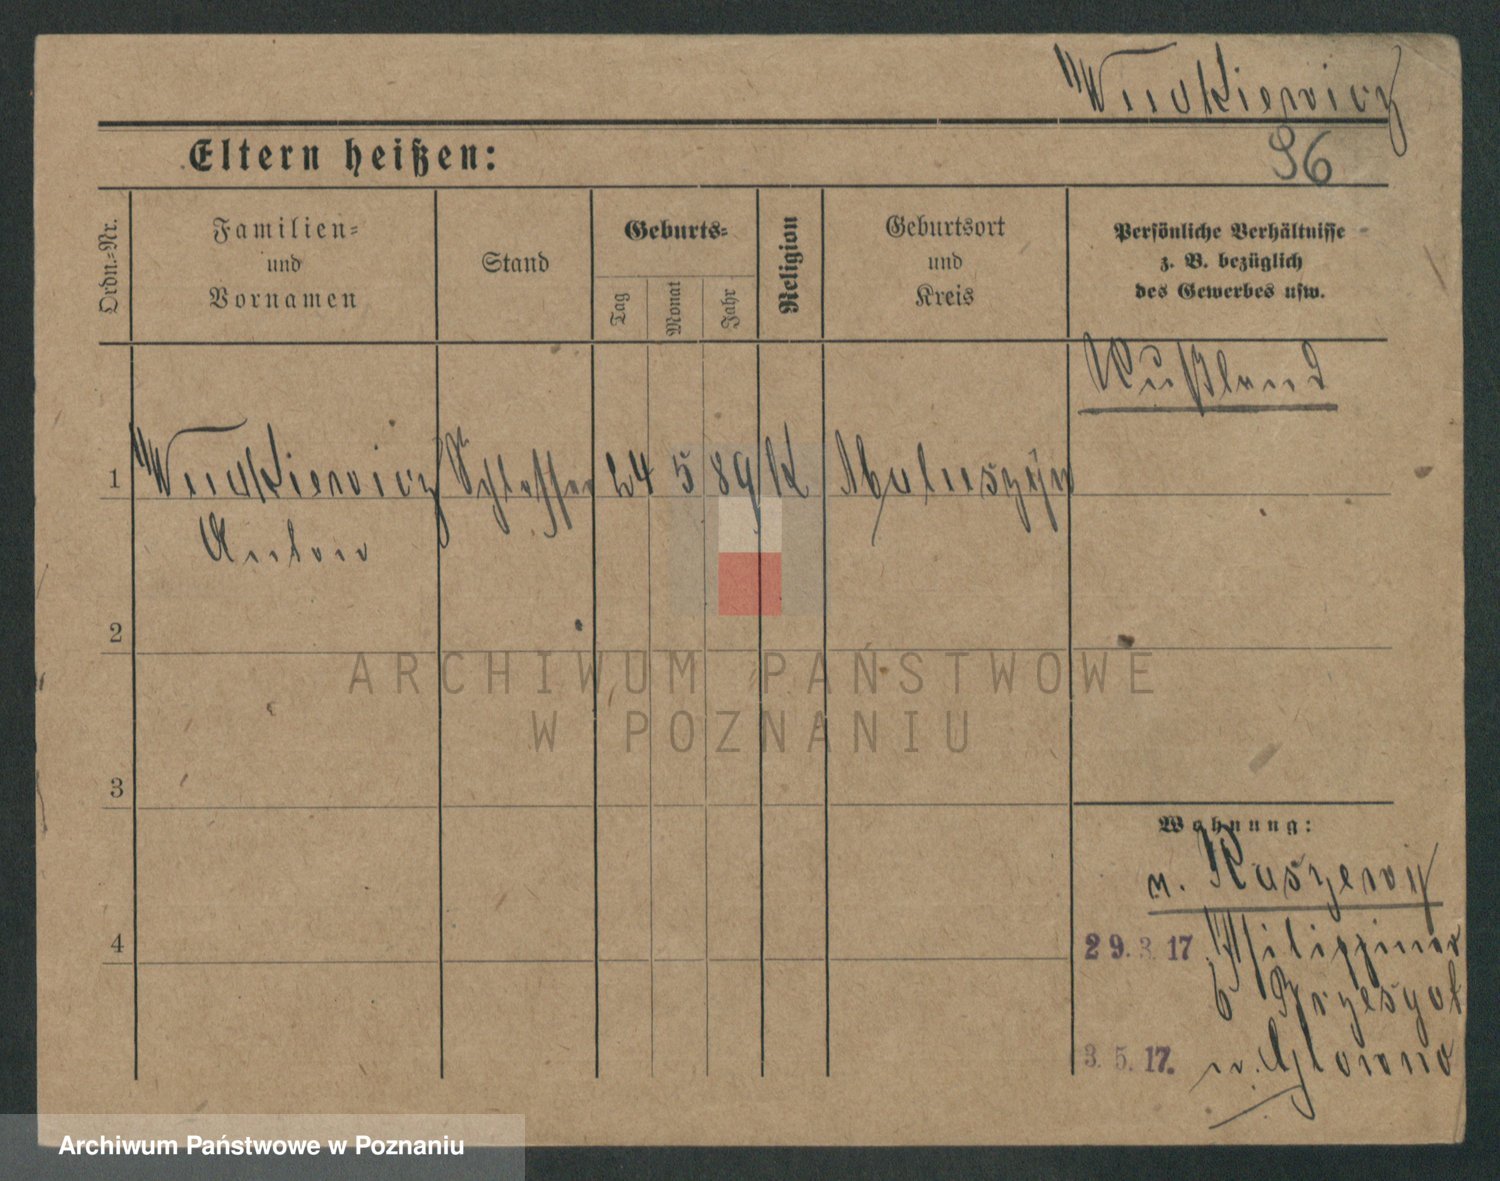 Wudkiewicz
96
Eltern heißen:
Ordn.-Nr.
Familien-
und
Vornamen
Stand
Geburts-
Tag
Monat
Jahr
Religion
Geburtsort
und
Kreis
Persönliche Verhältnisse
z. B. bezüglich
des Gewerbes usw.
Rußland
1
Wudkiewicz Schlosser 24 5 89 K
Anton
2
ARCHIWUM PAŃSTWOWE
W POZNANIU
3
Wohnung:
n.
4
29.3.17
b
3.5.17. n. Glowno
Archiwum Państwowe w Poznaniu